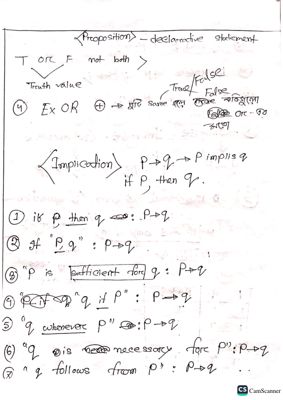 <Proposition> - declarative statement
T OR F not both >
Truth value
True/False
④ Ex OR ⊕ → যদি same হলে False
<Implication> P→q → P implies q
if P, then q.
① if P, then q : P→q
② If "P, q" : P→q
③ "P is sufficient for q : P→q
④ "q if P" : P→q
⑤ "q whenever P" : P→q
⑥ "q is necessary for P": P→q
⑦ "q follows from P" : P→q
CS CamScanner